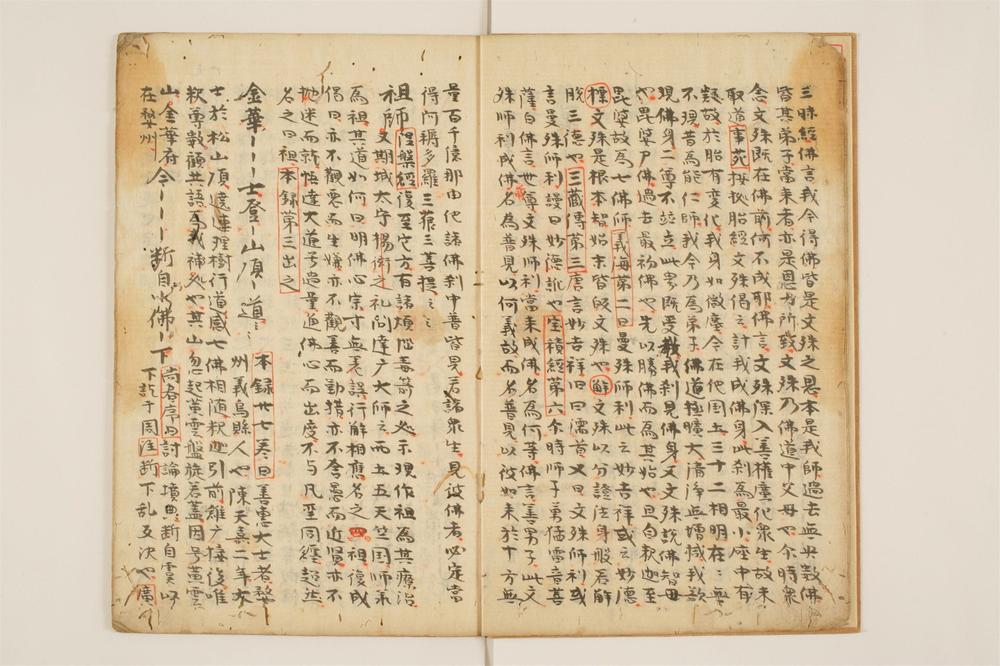 三昧經佛言我今得佛皆是文殊之恩本是我師過去無央數佛
皆其弟子當来者亦是恩力所致文殊乃佛道中父母也尒時衆
念文殊既在佛前何不成耶佛言文殊深入善權廣化衆生故未
取道事苑 胎經文殊偈云計我成佛身此刹為最小座中有
疑故於胎有變化我身如微塵今在他国土三十二相明在〻無
不現昔為能仁師我今乃為弟子佛道極曠大清浄無増减我欲
現佛身二尊不竝立此界既受教我刹見佛身又文殊説佛智母
也毘婆尸佛過去最初佛也先以勝佛而為其始也且自釈迦至
毘婆故為七佛師義海第二曰曼殊師利此云妙吉祥或云妙德
標文殊是根本智始末皆 文殊也解文殊以分證法身般若解
脱三德也三藏傳第三 言妙吉祥旧曰濡首又曰文殊師利或
言曼殊師利 曰妙德訛也宝積經第六尒時師子勇猛雷音菩
薩白佛言世尊文殊師利當来成佛名為何等佛言善男子此文
殊師利成佛名為普見以何義故而名普見以彼如来於十方無
量百千億那由他諸佛刹中普皆見若諸衆生見彼佛者必定當
得阿耨多羅三藐三菩提〻〻
祖師涅槃經復至它方有諸煩惱毒箭之処示現作祖為其療治
又期城太守楊衒之礼問達广大師云而五五天竺国師承
為祖其道如何曰明佛心宗寸無差誤行解相應名之四祖復成
偈曰亦不觀惡而生嫌亦不觀善而勤措亦不舍愚而近賢亦不
抛迷而就悟達大道兮過量通佛心而出度不与凡聖同纏超然
名之曰祖本録第三出之
金華ーー士登ー山頂ー道〻 本録廾七善曰善惠大士者婺
州義烏縣人也陳天嘉二年大
士於松山頂遶連理樹行道感七佛相随釈迦引前維广接後唯
釈尊数顧共語為我補処也其山忽起黄雲盤旋若盖因号黄雲
山金華府今ーーー断自ー佛ー下 尚書序曰討論墳典断自 以
在婺州 下訖于周 断下乱反决也廣